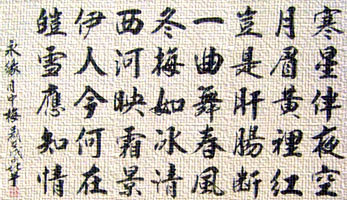 寒星伴夜空
月眉黃裡紅
豈是肝腸斷
一曲舞春風
冬梅如冰清
西河映霜景
伊人今何在
皚雪應知情